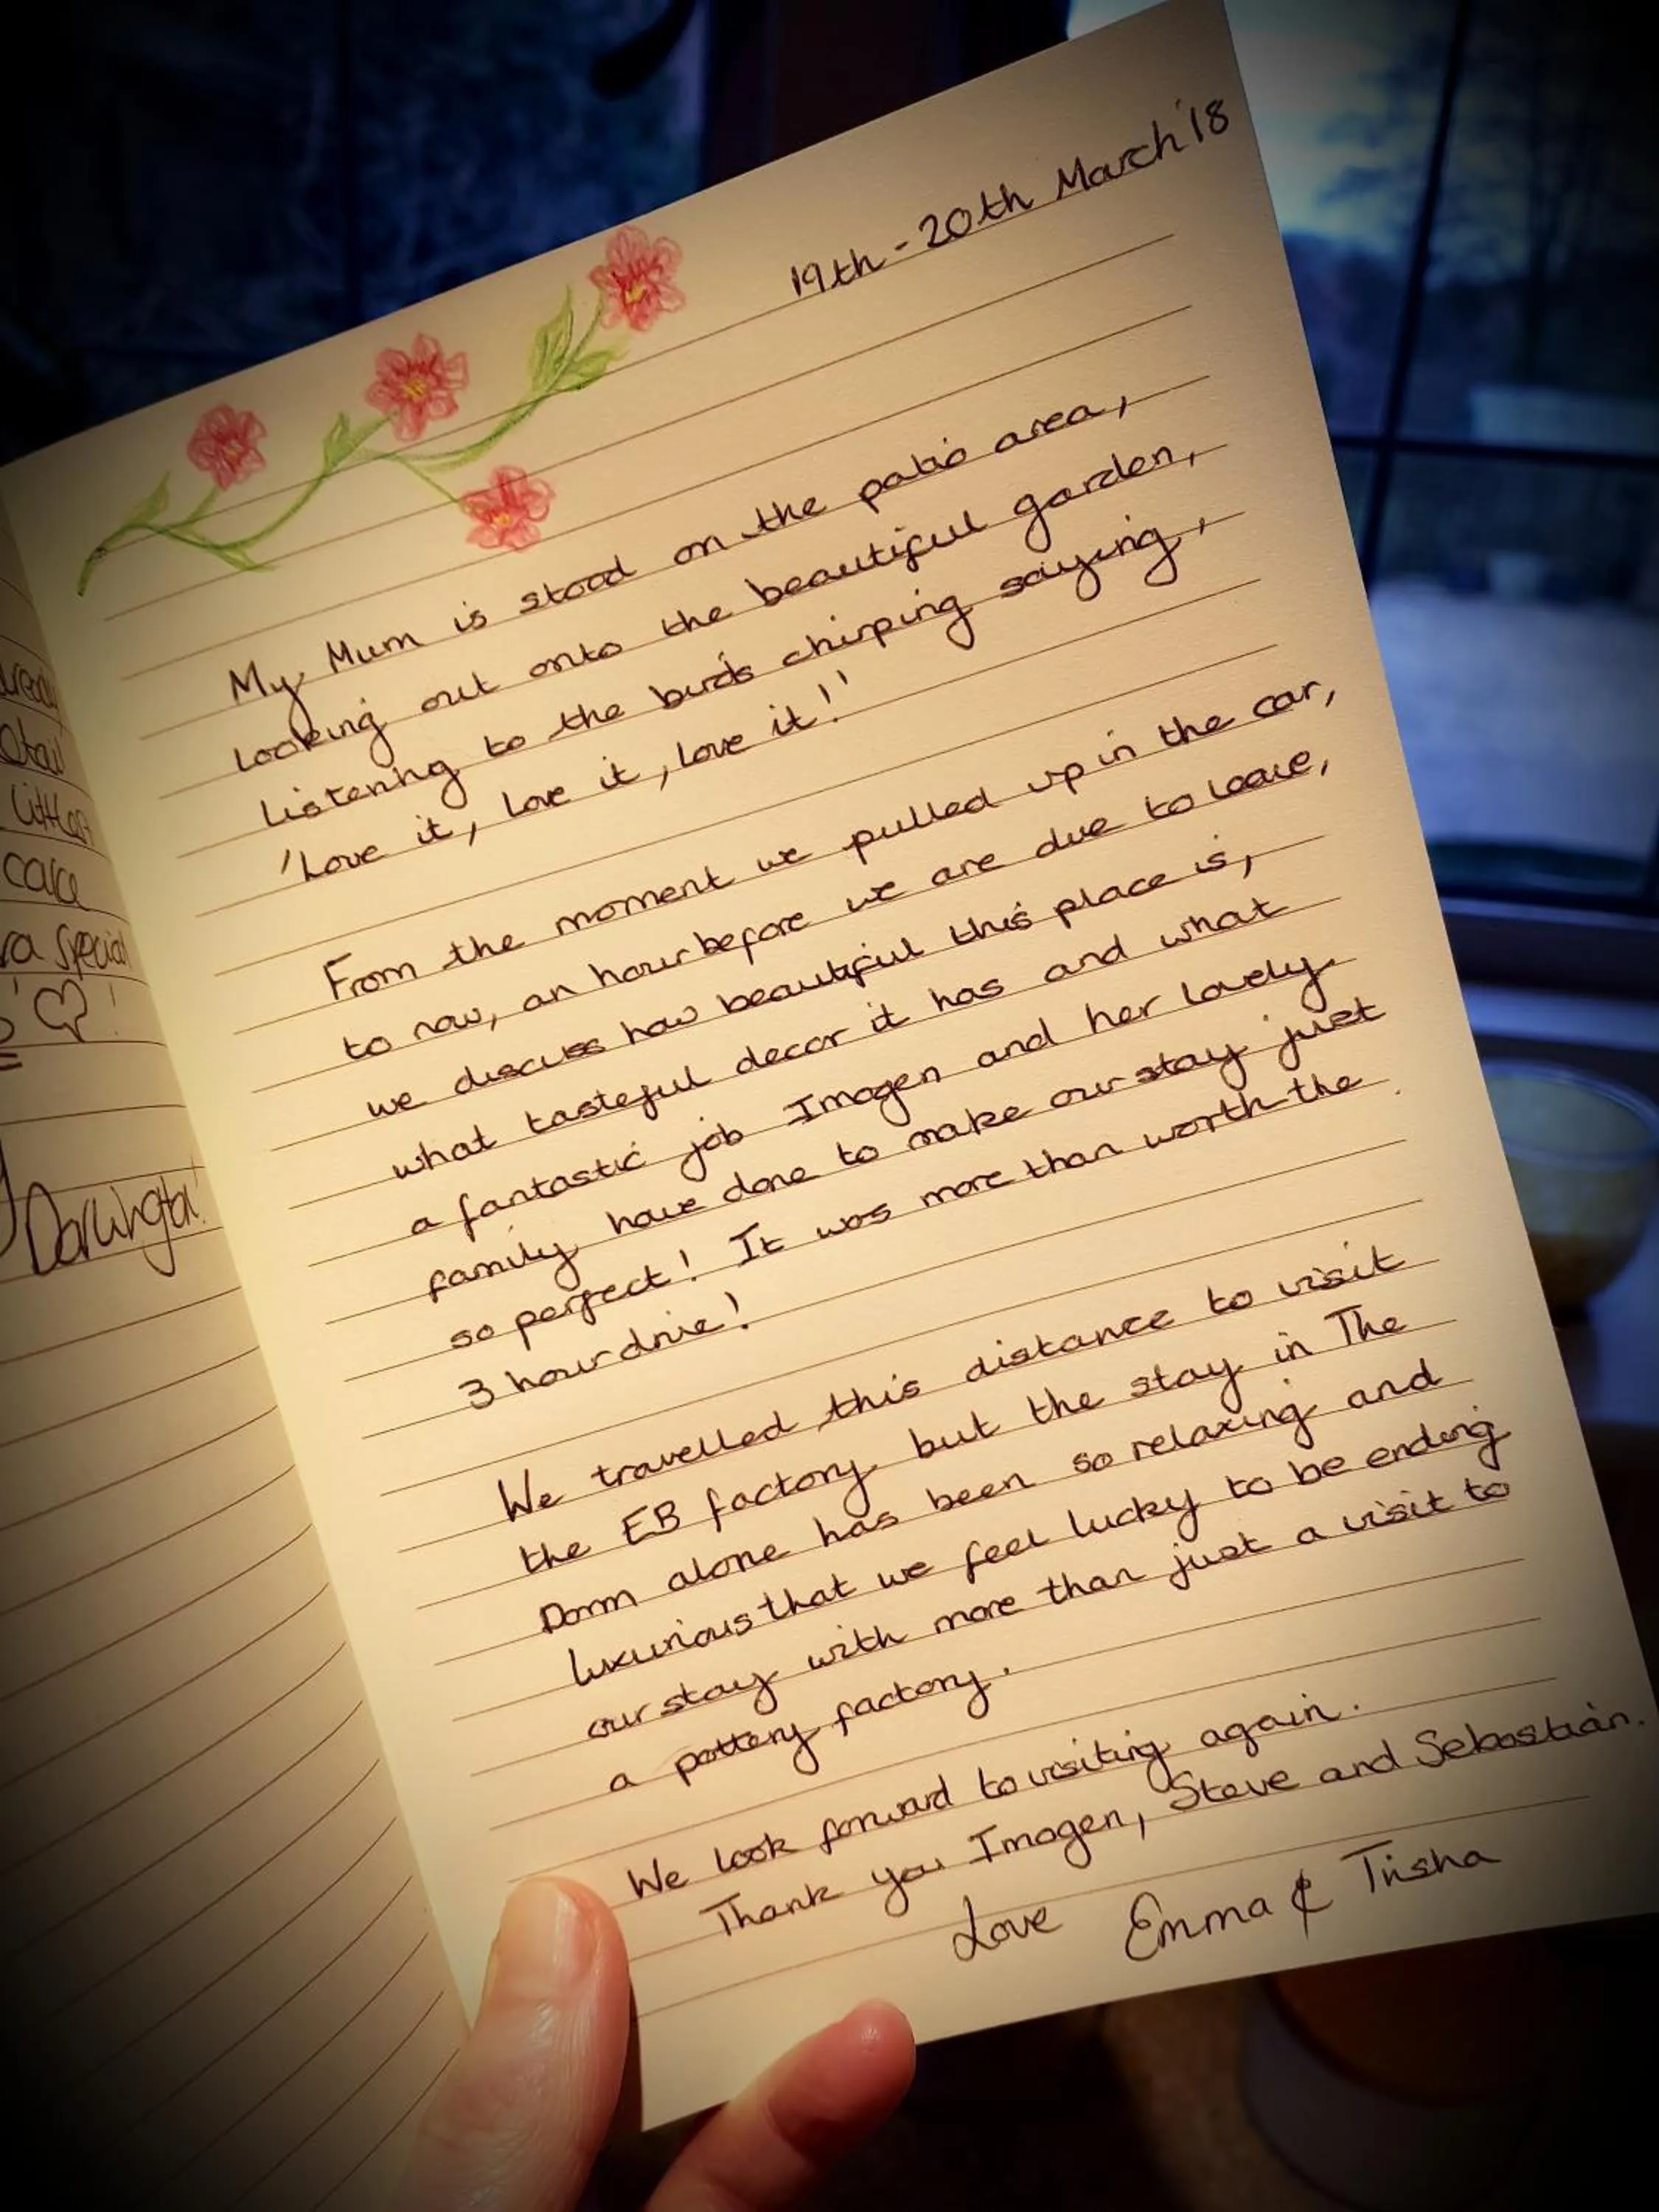 19th - 20th March '18
My Mum is stood on the patio area,
looking out onto the beautiful garden,
listening to the birds chirping saying,
'Love it, love it, love it!'
From the moment we pulled up in the car,
to now, an hour before we are due to leave,
we discuss how beautiful this place is,
what tasteful decor it has and what
a fantastic job Imogen and her lovely
family have done to make our stay just
so perfect! It was more than worth the
3 hour drive!
We travelled this distance to visit
the EB factory but the stay in The
Dorm alone has been so relaxing and
luxurious that we feel lucky to be ending
our stay with more than just a visit to
a pottery factory.
We look forward to visiting again.
Thank you Imogen, Steve and Sebastian.
Love Emma & Trisha
care
Special
Darlington!